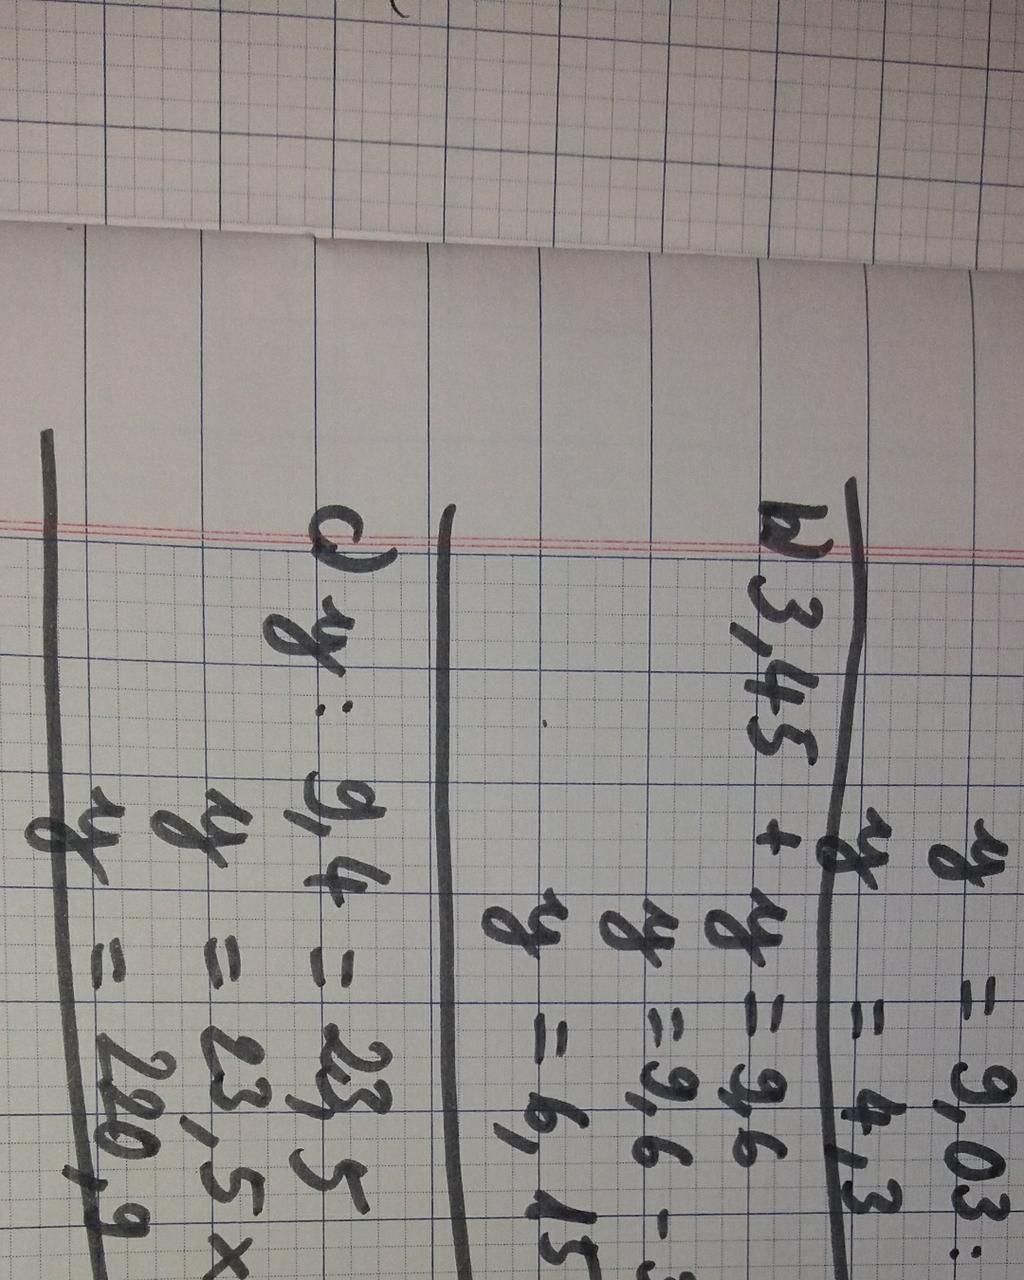 y = 9,03 :
y = 4,3
b) 3,45 + y = 9,6
y = 9,6 - 3
y = 6,15
c) y : 9,4 = 23,5
y = 23,5 x
y = 220,9